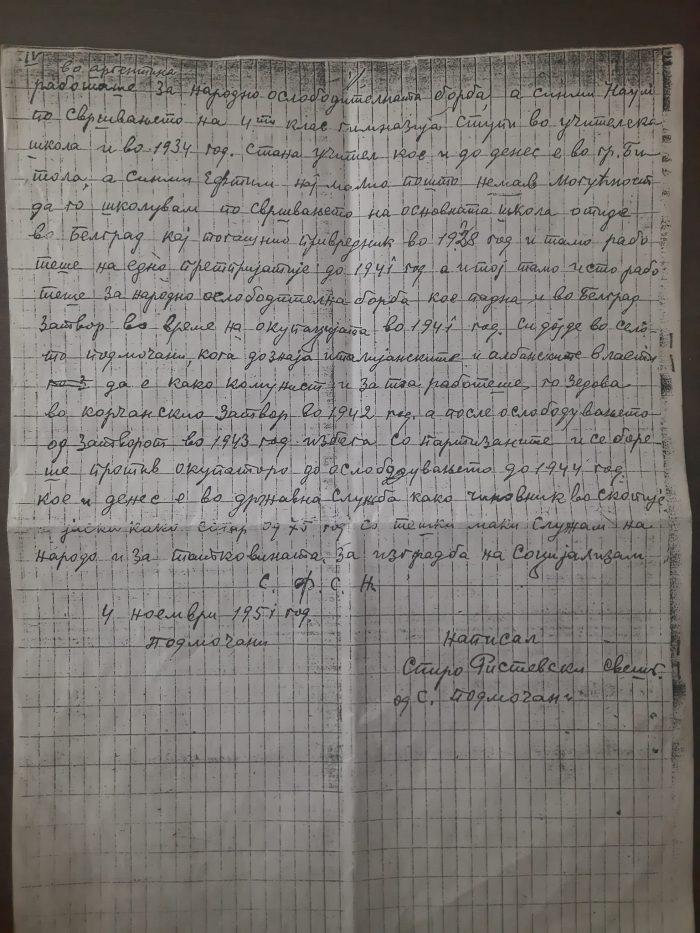 IV
во аргентина
работаше за народно ослободителната борба, а син ми Наум
по свршвањето на 4ти клас гимназија ступи во учителска
школа и во 1934 год. стана учител кое и до денес е во гр. Би-
тола, а син ми Ефтим нај мало пошто немав могуќност
да го школувам по свршвањето на основната школа отиде
во Белград кај тогашнио привредник во 1928 год и тамо рабо
теше на едно претпријатије до 1941 год а и тој тамо исто рабо
теше за народно ослободителна борба кое падна и во Белград
затвор во време на окупацијата во 1941 год. Си дојде во село-
то подмочани, кога дознаја италијанските и албанските власти
да е како комунист и за тоа работеше, го зедова
во корчанскио затвор во 1942 год. а после ослободувањето
од затворот во 1943 год избега со партизаните и се боре-
ше против окупаторо до ослободувањето до 1944 год.
кое и денес е во државна служба како чиновник во скопије
јаска како стар од 75 год со тешки маки служам на
народо и за татковината за изградба на Социјализам
С. Ф. С. Н.
4 ноември 1951 год.
Подмочани
Написал
Стиро Ристевски свешт.
од с. Подмочани